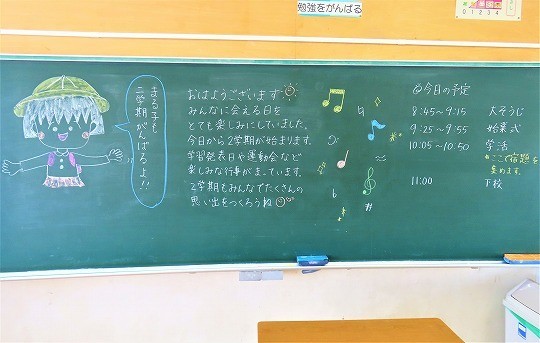 勉強をがんばる
0 1 2 3 4
まる子も
二学期がんばるよ!!
おはようございます
みんなに会える日を
とても楽しみにしていました。
今日から2学期が始まります。
学習発表日や運動会など
楽しみな行事がまっています。
2学期もみんなでたくさんの
思い出をつくろうね
今日の予定
8:45〜9:15 大そうじ
9:25〜9:55 始業式
10:05〜10:50 学活
*ここで宿題を
集めます。
11:00 下校